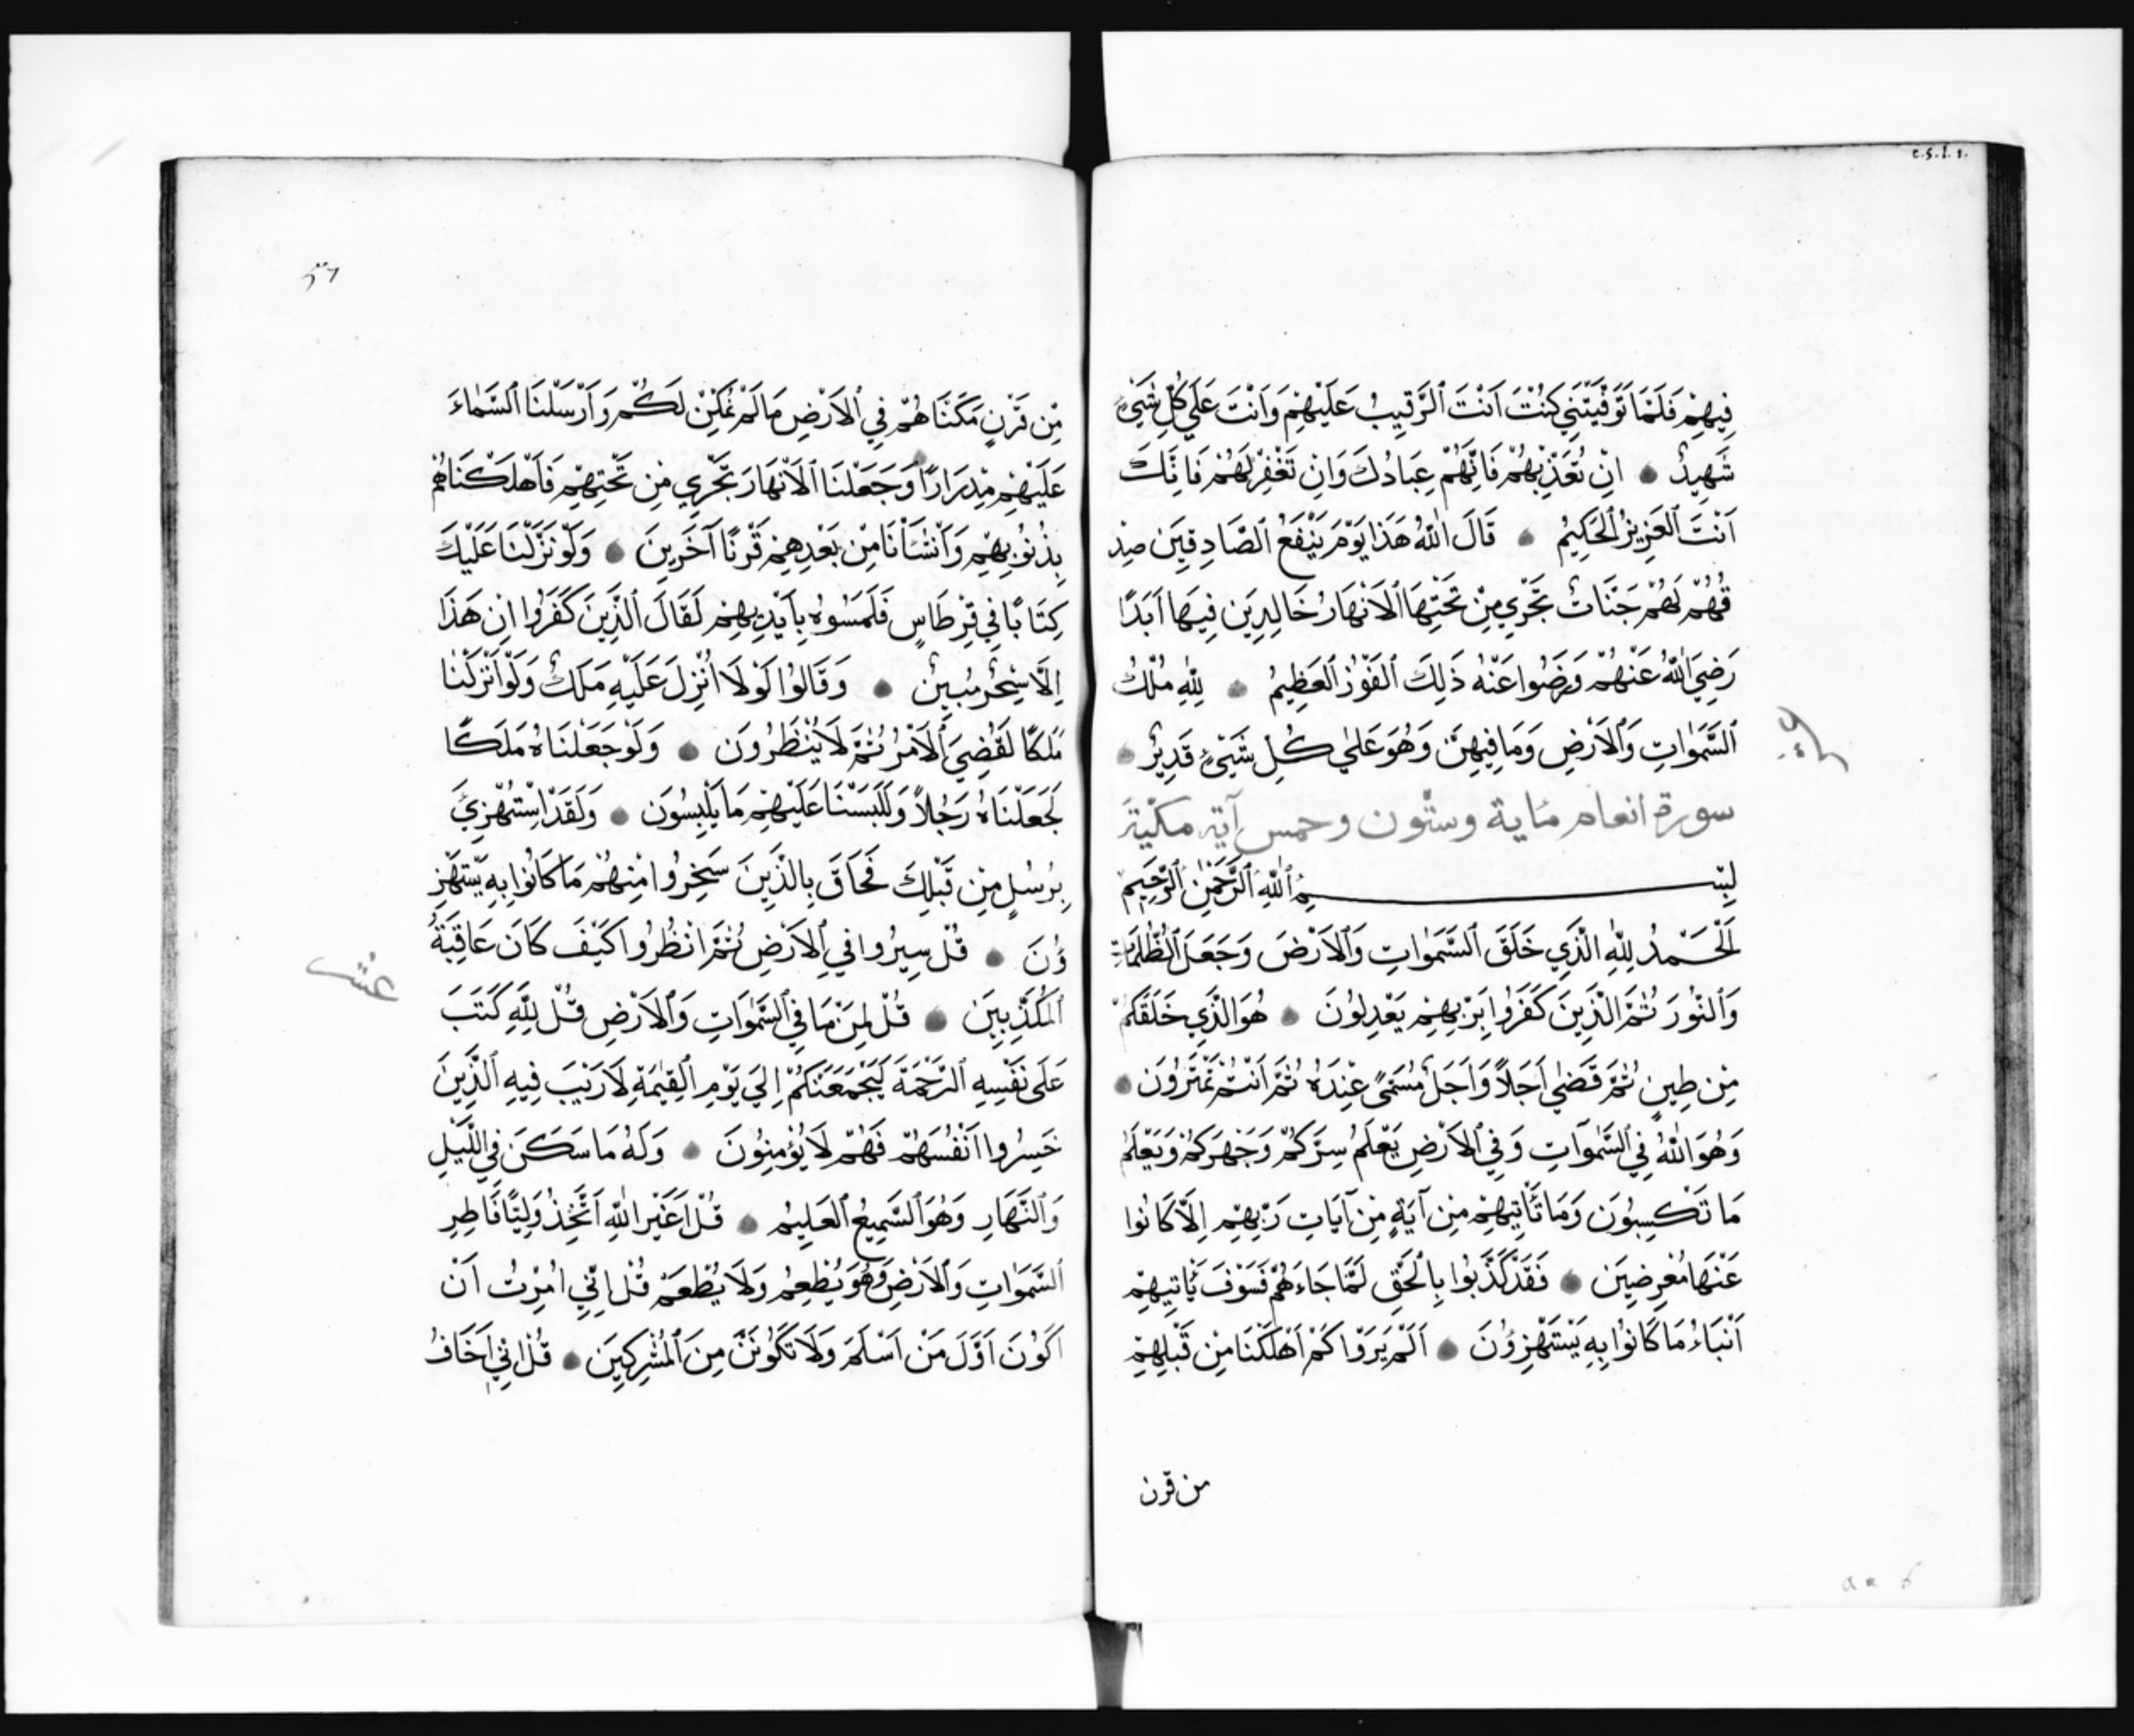 فِيهِمْ فَلَمَّا تَوَفَّيْتَنِي كُنْتَ اَنْتَ ٱلرَّقِيبُ عَلَيْهِمْ وَاَنْتَ عَلَي كُلِّ شَيْءٍ
شَهِيدٌ اِنْ تُعَذِّبْهُمْ فَاِنَّهُمْ عِبَادُكَ وَاِنْ تَغْفِرْ لَهُمْ فَاِنَّكَ
اَنْتَ ٱلعَزِيزُ ٱلحَكِيمُ قَالَ اللّٰهُ هَذَا يَوْمَ يَنْفَعُ ٱلصَّادِقِينَ صِدْ
قُهُمْ لَهُمْ جَنَّاتٌ تَجْرِي مِنْ تَحْتِهَا ٱلاَنْهَارُ خَالِدِينَ فِيهَا اَبَدًا
رَضِيَ اللّٰهُ عَنْهُمْ وَرَضُوا عَنْهُ ذَلِكَ ٱلفَوْزُ ٱلعَظِيمُ لِلّٰهِ مُلْكُ
ٱلسَّمَوٰاتِ وَٱلاَرْضِ وَمَا فِيهِنَّ وَهُوَ عَلٰي كُلِّ شَيْئٍ قَدِيرٌ
سورة انعام مٔاية وستّون وخمس آية مكّية
بِسْمِ ٱللّٰهِ ٱلرَّحْمٰنِ ٱلرَّحِيمِ
اَلْحَمْدُ لِلّٰهِ الَّذِي خَلَقَ ٱلسَّمَوٰاتِ وَٱلاَرْضَ وَجَعَلَ ٱلظُّلُمَاتِ
وَٱلنُّورَ ثُمَّ الَّذِينَ كَفَرُوا بِرَبِّهِمْ يَعْدِلُونَ هُوَ الَّذِي خَلَقَكُمْ
مِنْ طِينٍ ثُمَّ قَضٰي اَجَلاً وَاَجَلٌ مُسَمًّى عِنْدَهُ ثُمَّ اَنْتُمْ تَمْتَرُونَ
وَهُوَ اللّٰهُ فِي ٱلسَّمٰوَاتِ وَفِي ٱلاَرْضِ يَعْلَمُ سِرَّكُمْ وَجَهْرَكُمْ وَيَعْلَمُ
مَا تَكْسِبُونَ وَمَا تَأْتِيهِمْ مِنْ آيَةٍ مِنْ آيَاتِ رَبِّهِمْ اِلاَّ كَانُوا
عَنْهَا مُعْرِضِينَ فَقَدْ كَذَّبُوا بِالْحَقِّ لَمَّا جَاءَهُمْ فَسَوْفَ يَأْتِيهِمْ
اَنْبَاءُ مَا كَانُوا بِهِ يَسْتَهْزِؤُنَ اَلَمْ يَرَوْا كَمْ اَهْلَكْنَا مِنْ قَبْلِهِمْ
من قرن
مِّنْ قَرْنٍ مَكَّنَّاهُمْ فِي ٱلاَرْضِ مَا لَمْ نُمَكِّنْ لَكُمْ وَاَرْسَلْنَا ٱلسَّمَاءَ
عَلَيْهِمْ مِدْرَارًا وَجَعَلْنَا ٱلاَنْهَارَ تَجْرِي مِنْ تَحْتِهِمْ فَاَهْلَكْنَاهُمْ
بِذُنُوبِهِمْ وَاَنْشَأْنَا مِنْ بَعْدِهِمْ قَرْنًا آخَرِينَ وَلَوْ نَزَّلْنَا عَلَيْكَ
كِتَابًا فِي قِرْطَاسٍ فَلَمَسُوهُ بِاَيْدِيهِمْ لَقَالَ ٱلَّذِينَ كَفَرُوا اِنْ هَذَا
اِلاَّ سِحْرٌ مُبِينٌ وَقَالُوا لَوْلَا اُنْزِلَ عَلَيْهِ مَلَكٌ وَلَوْ اَنْزَلْنَا
مَلَكًا لَقُضِيَ ٱلاَمْرُ ثُمَّ لَا يُنْظَرُونَ وَلَوْ جَعَلْنَاهُ مَلَكًا
لَجَعَلْنَاهُ رَجُلاً وَلَلَبَسْنَا عَلَيْهِمْ مَا يَلْبِسُونَ وَلَقَدْ اسْتُهْزِئَ
بِرُسُلٍ مِنْ قَبْلِكَ فَحَاقَ بِالَّذِينَ سَخِرُوا مِنْهُمْ مَا كَانُوا بِهِ يَسْتَهْزِ
ؤُنَ قُلْ سِيرُوا فِي ٱلاَرْضِ ثُمَّ انْظُرُوا كَيْفَ كَانَ عَاقِبَةُ
ٱلمُكَذِّبِينَ قُلْ لِمَنْ مَا فِي ٱلسَّمٰوَاتِ وَٱلاَرْضِ قُلْ لِلّٰهِ كَتَبَ
عَلَى نَفْسِهِ ٱلرَّحْمَةَ لَيَجْمَعَنَّكُمْ اِلَي يَوْمِ ٱلقِيٰمَةِ لَا رَيْبَ فِيهِ ٱلَّذِينَ
خَسِرُوا اَنْفُسَهُمْ فَهُمْ لَا يُؤْمِنُونَ وَلَهُ مَا سَكَنَ فِي اللَّيْلِ
وَٱلنَّهَارِ وَهُوَ ٱلسَّمِيعُ ٱلعَلِيمُ قُلْ اَغَيْرَ اللّٰهِ اَتَّخِذُ وَلِيًّا فَاطِرِ
ٱلسَّمَوٰاتِ وَٱلاَرْضِ وَهُوَ يُطْعِمُ وَلَا يُطْعَمُ قُلْ اِنِّي اُمِرْتُ اَنْ
اَكُونَ اَوَّلَ مَنْ اَسْلَمَ وَلَا تَكُونَنَّ مِنَ ٱلمُشْرِكِينَ قُلْ اِنِّي اَخَافُ
عشر